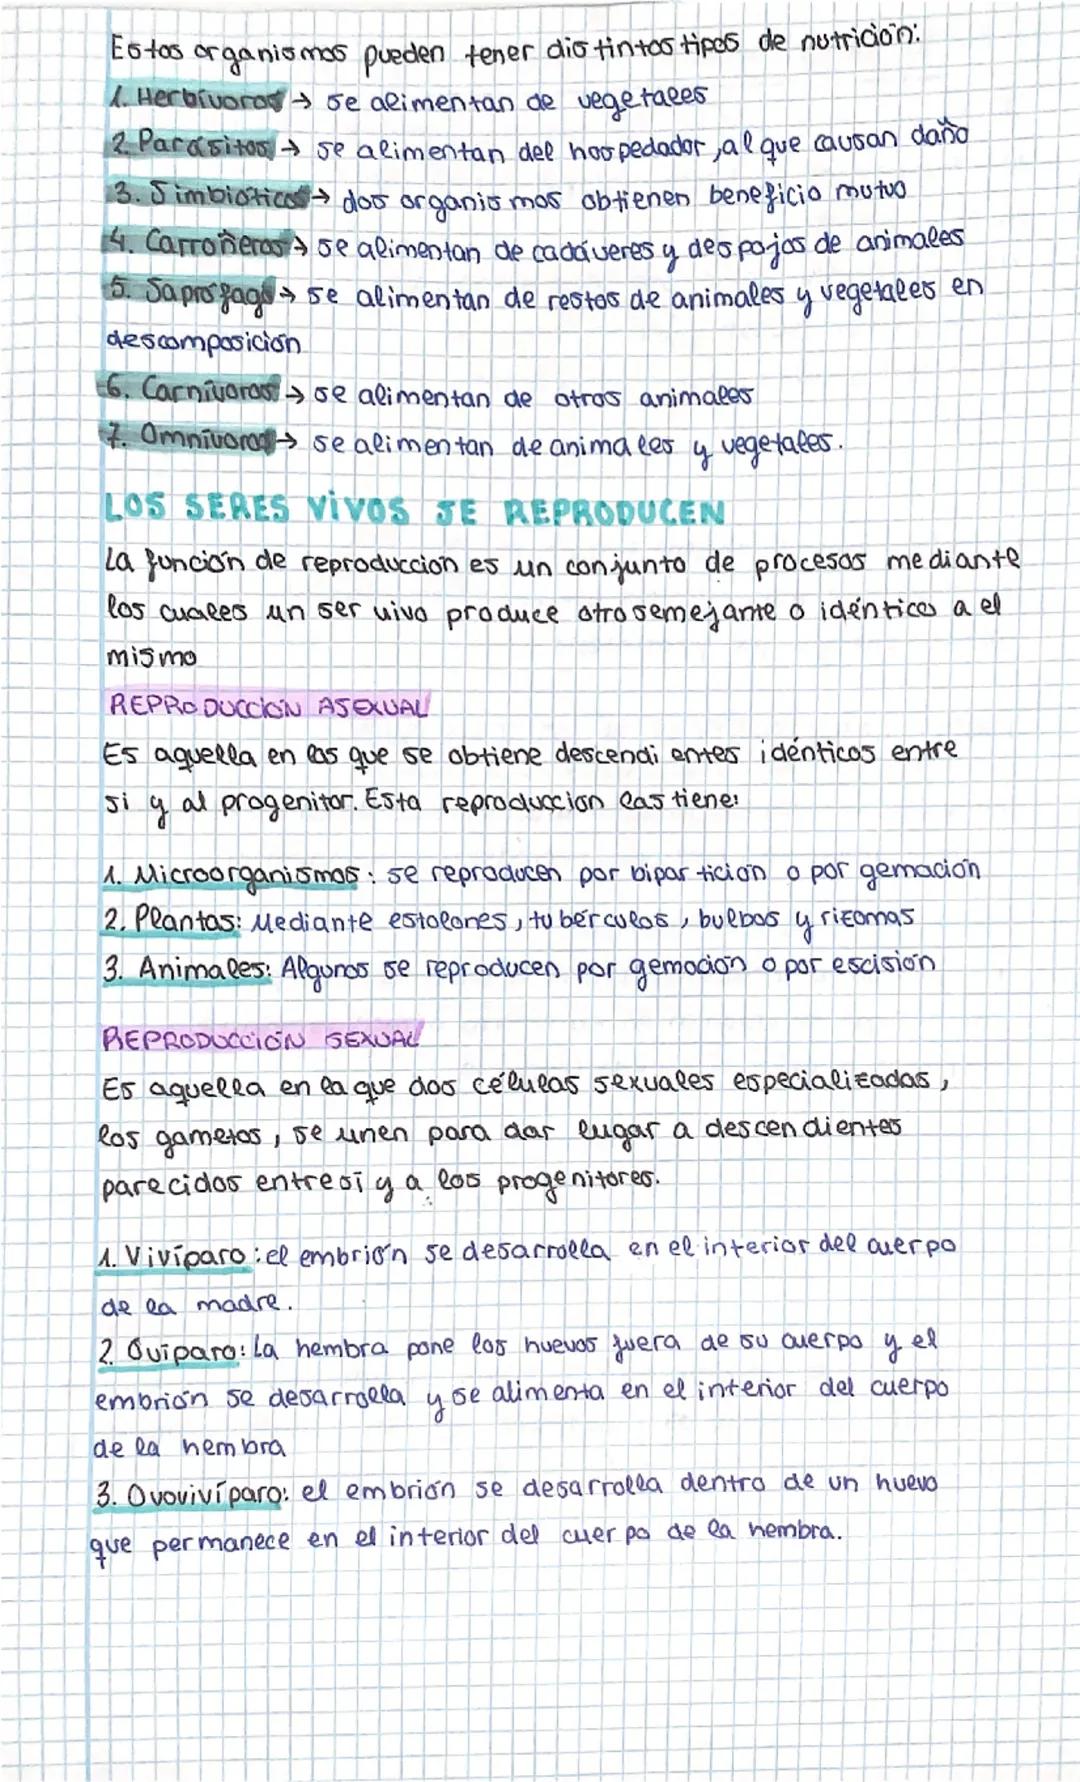 Estos organismos pueden tener distintos tipos de nutrición:
1. Herbívoros → se alimentan de vegetales
2. Parásitos → se alimentan del hospedador, al que causan daño
3. Simbióticos → dos organismos obtienen beneficio mutuo
4. Carroñeros → se alimentan de cadáveres y despojos de animales
5. Saprófago → se alimentan de restos de animales y vegetales en
descomposición
6. Carnívoros → se alimentan de otros animales
7. Omnívoros → se alimentan de animales y vegetales.
LOS SERES VIVOS SE REPRODUCEN
La función de reproducción es un conjunto de procesos mediante
los cuales un ser vivo produce otro semejante o idéntico a el
mismo
REPRODUCCIÓN ASEXUAL
Es aquella en las que se obtiene descendientes idénticos entre
si y al progenitor. Esta reproduccion las tiene:
1. Microorganismos: se reproducen por bipartición o por gemación
2. Plantas: Mediante estolones, tubérculos, bulbos y rizomas
3. Animales: Algunos se reproducen por gemación o por escisión
REPRODUCCIÓN SEXUAL
Es aquella en la que dos células sexuales especializadas,
los gametos, se unen para dar lugar a descendientes
parecidos entre sí y a los progenitores.
1. Vivíparo: el embrión se desarrolla en el interior del cuerpo
de la madre.
2. Ovíparo: La hembra pone los huevos fuera de su cuerpo y el
embrión se desarrolla y se alimenta en el interior del cuerpo
de la hembra
3. Ovovivíparo: el embrión se desarrolla dentro de un huevo
que permanece en el interior del cuerpo de la hembra.